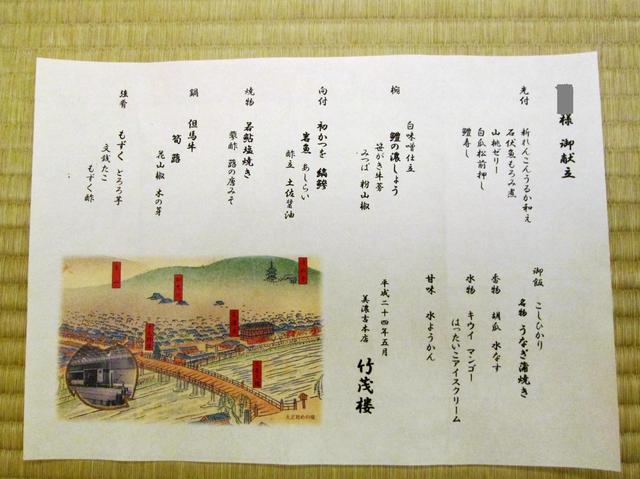 様 御献立
先付
新れんこんうるか和え
石伏魚もろみ煮
山桃ゼリー
白瓜松前押し
鱧寿し
椀
白味噌仕立
鯉の濃しょう
笹がき牛蒡
みつば 粉山椒
向付
初かつを 縞鯵
岩魚 あしらい
酢立 土佐醤油
焼物
若鮎塩焼き
蓼酢 蕗の唐みそ
鍋
但馬牛
筍 蕗
花山椒 木の芽
強肴
もずく とろろ芋
文銭たこ
もずく酢
御飯 こしひかり
名物 うなぎ蒲焼き
香物 胡瓜 水なす
水物 キウイ マンゴー
はったいこアイスクリーム
甘味 水ようかん
平成二十四年五月
美濃吉本店 竹茂楼